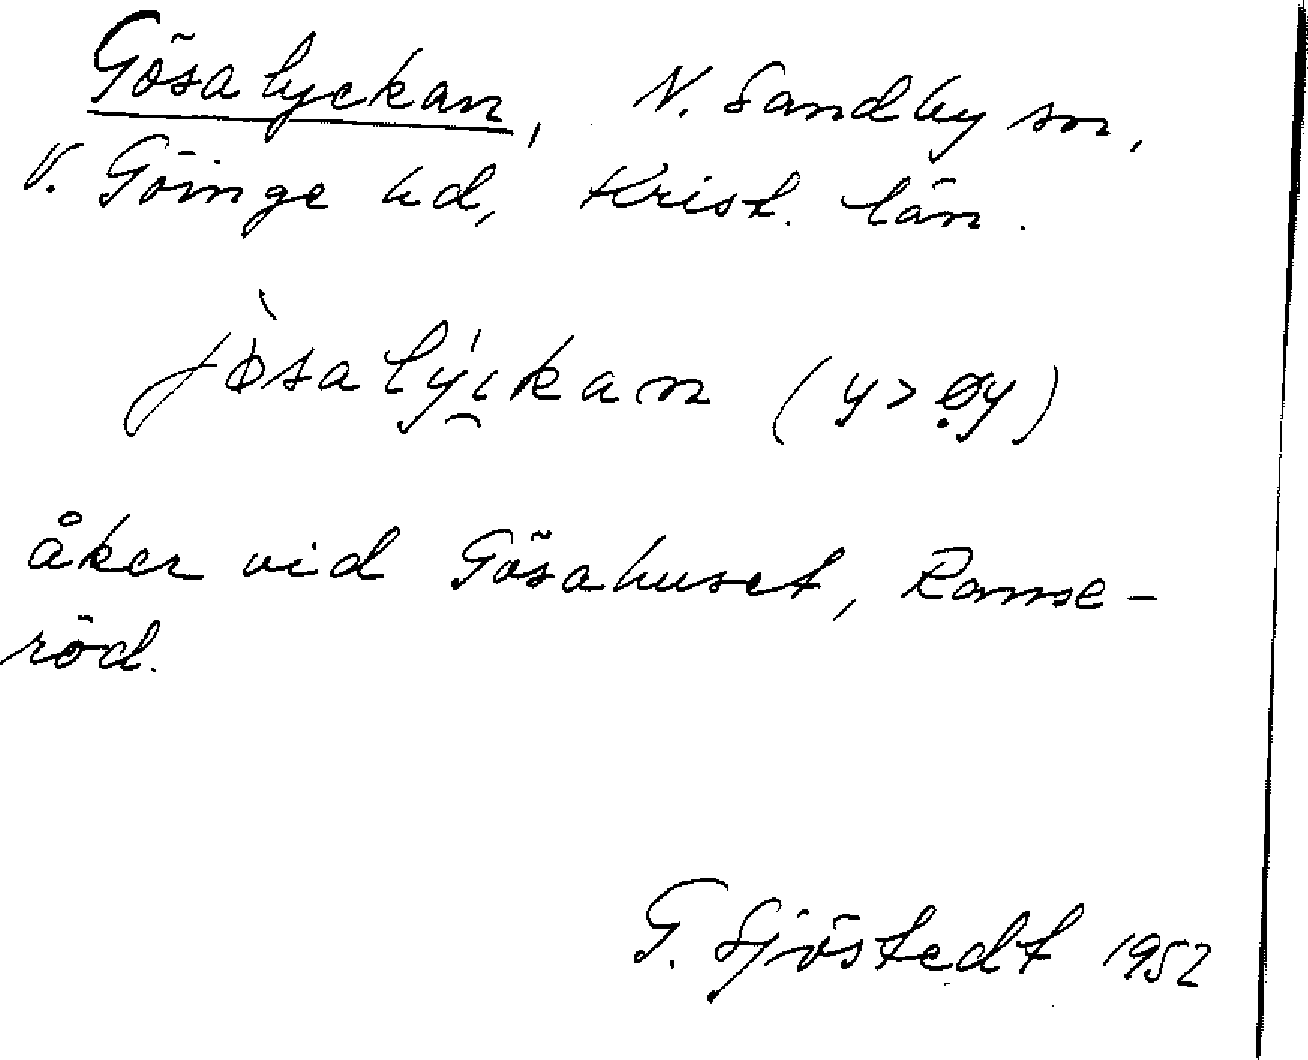 Gösalyckan, N. Sandby sn,
V. Göinge hd, Krist. län.
jø̀salýi̯kan (y > ø̣y)
åker vid Gösahuset, Ramse-
röd.
G. Sjöstedt 1952